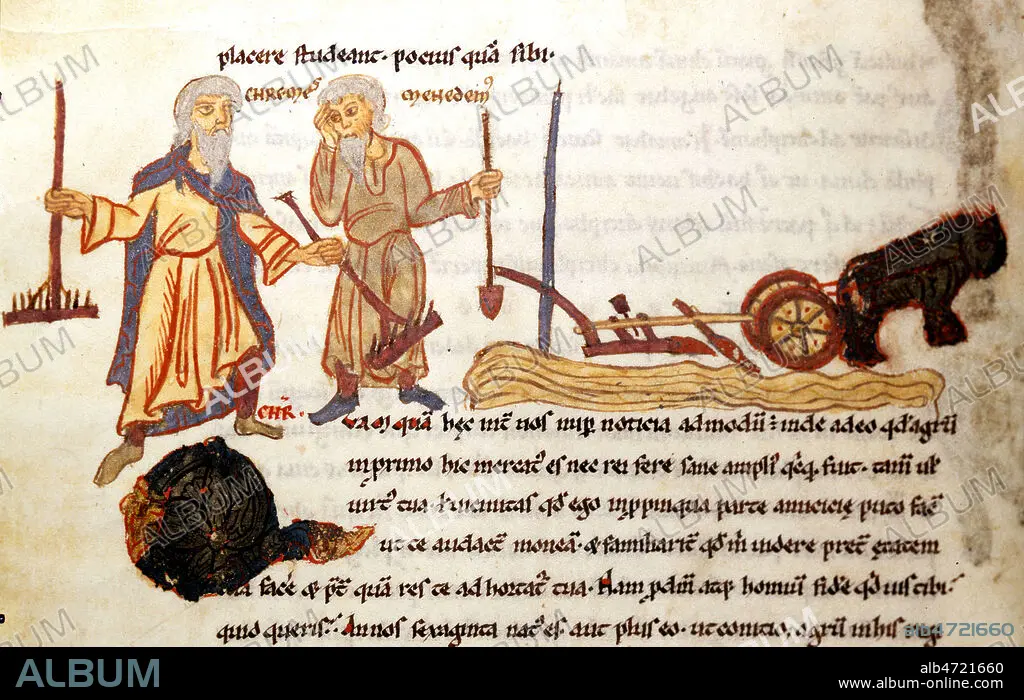 placere studeant. pocius quā sibi.
CHREMES MENEDEM⁹
CHR.
quā hęc int nos nup noticia admodū: inde adeo qd agrū
inprimo hic mercat⁹ es nec rei fere sane ampli⁹ fuit. tam̄ ul
uirt⁹ tua uicinitas qd ego inppinqua parte amicicię puto facē
ut te audact moneā. & familiarit qd m̄ uidere pret ętatem
facē & pt quā res te ad hortat tua. Nam hominū fidē qd uis tibi.
quid queris. Annos sexaginta nat⁹ es. aut plus eo. ut conicio. agrū inhis
ALBUM
alb4721660
alb4721660
www.album-online.com